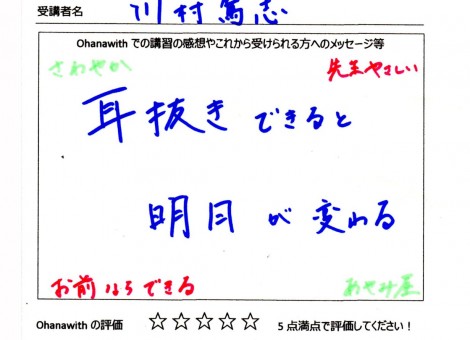 受講者名 川村篤志
Ohanawith での講習の感想やこれから受けられる方へのメッセージ等
さわやか 先生やさしい
耳抜きできると
明日が変わる
お前ならできる
Ohanawith の評価 ☆☆☆☆☆ 5点満点で評価してください!